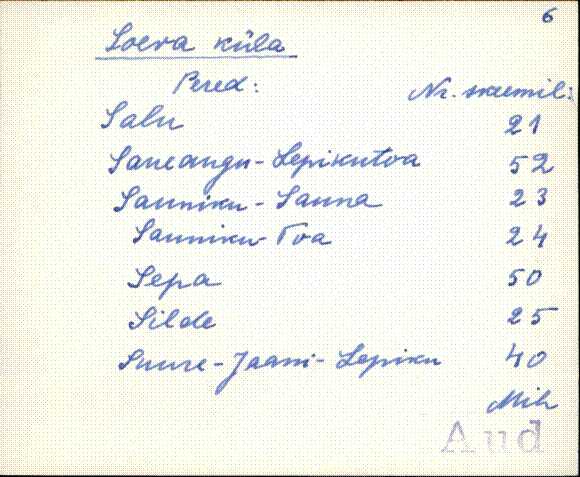 6
Loeva küla
Pered: Nr. skeemil:
Salu 21
Saueaugu-Lepikutoa 52
Sauniku-Sauna 23
Sauniku-Toa 24
Sepa 50
Silde 25
Suure-Jaani-Lepiku 40
Mih
Aud